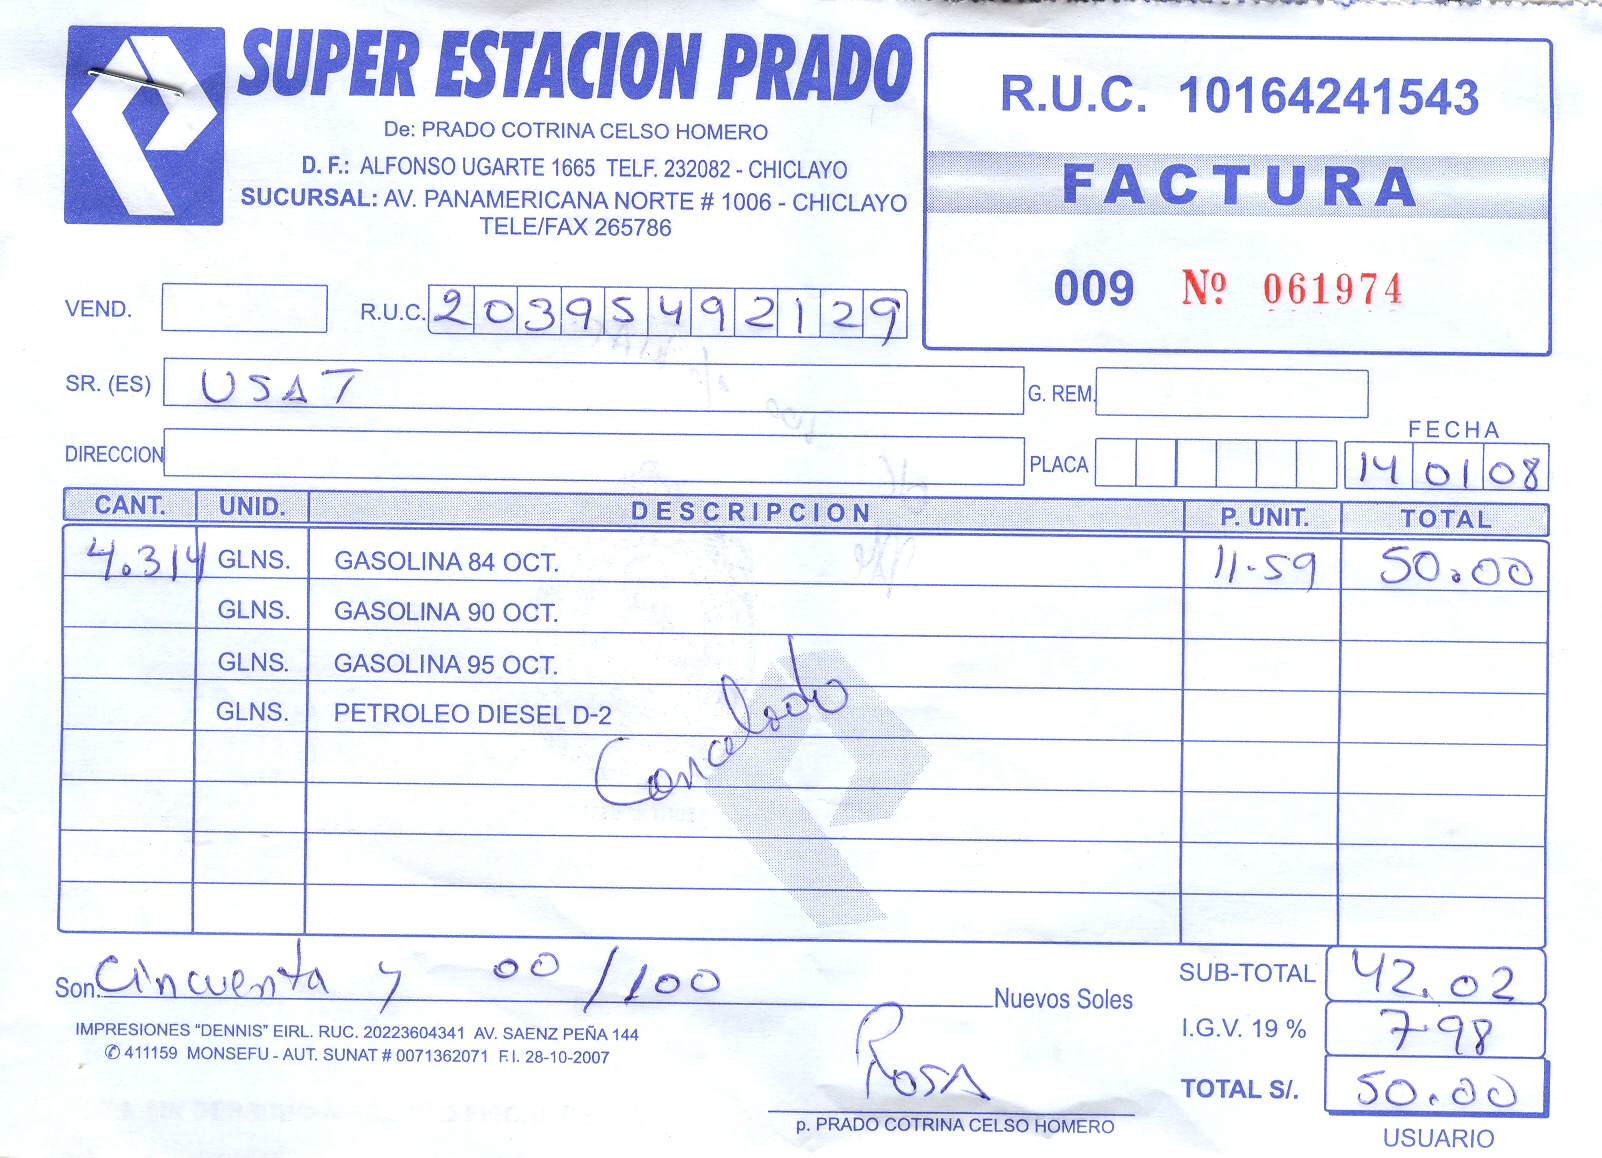 SUPER ESTACION PRADO
De: PRADO COTRINA CELSO HOMERO
D. F.: ALFONSO UGARTE 1665 TELF. 232082 - CHICLAYO
SUCURSAL: AV. PANAMERICANA NORTE # 1006 - CHICLAYO
TELE/FAX 265786
R.U.C. 10164241543
FACTURA
009 Nº 061974
VEND. R.U.C. 20395492129
SR. (ES) USAT G. REM.
FECHA
DIRECCION PLACA 14 01 08
CANT. UNID. DESCRIPCION P. UNIT. TOTAL
4.314 GLNS. GASOLINA 84 OCT. 11.59 50.00
GLNS. GASOLINA 90 OCT.
GLNS. GASOLINA 95 OCT.
GLNS. PETROLEO DIESEL D-2
Cancelado
Son. Cincuenta y 00/100 Nuevos Soles
SUB-TOTAL 42.02
I.G.V. 19 % 7.98
TOTAL S/. 50.00
USUARIO
IMPRESIONES "DENNIS" EIRL. RUC. 20223604341 AV. SAENZ PEÑA 144
✆ 411159 MONSEFU - AUT. SUNAT # 0071362071 F.I. 28-10-2007
Rosa
p. PRADO COTRINA CELSO HOMERO